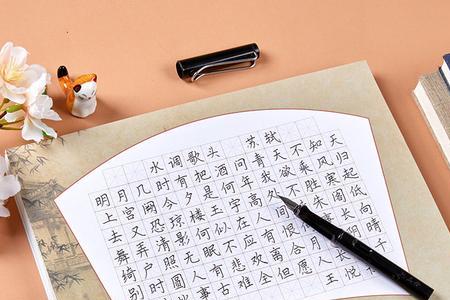 水调歌头 苏轼
明月几时有把酒问青天不知天
上宫阙今夕是何年我欲乘风归
去又恐琼楼玉宇高处不胜寒起
舞弄清影何似在人间阁低
绮户照无眠不应有恨事长向
别时圆人有悲欢离合月阴晴
事古难全但愿人长千